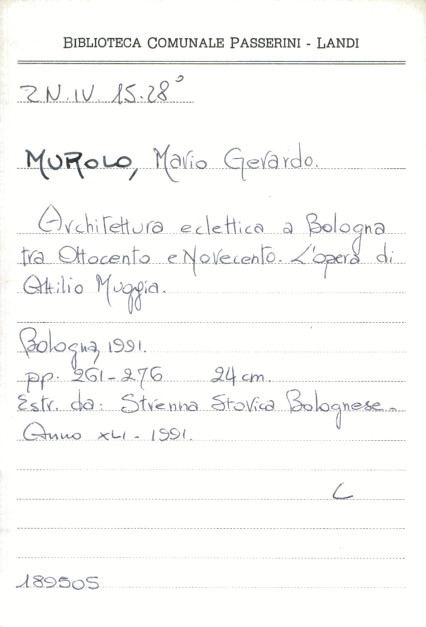 BIBLIOTECA COMUNALE PASSERINI - LANDI
2 N. IV. 15.28°
MUROLO, Mario Gerardo.
Architettura eclettica a Bologna
tra Ottocento e Novecento. L'opera di
Attilio Muggia.
Bologna, 1991.
pp. 261-276 24 cm.
Estr. da: Strenna Storica Bolognese.
Anno XLI - 1991.
L
189505